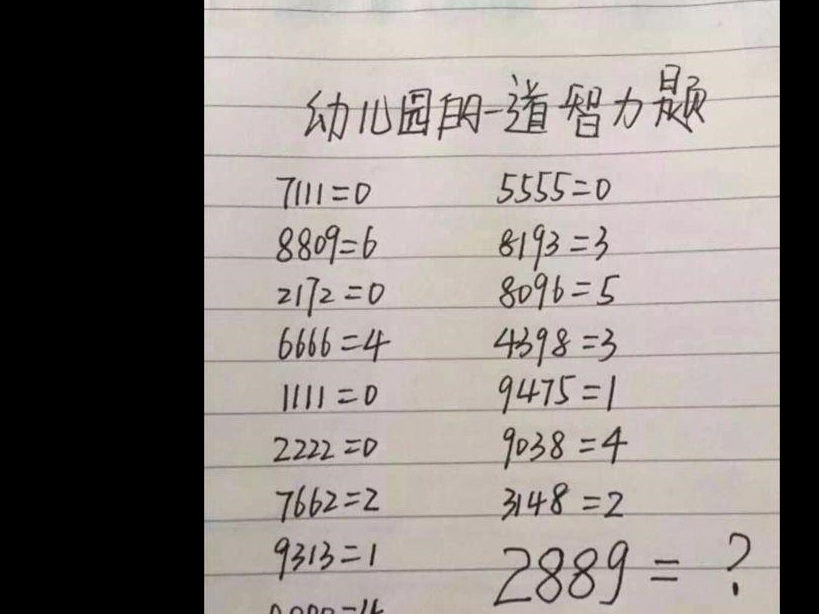 幼儿园的一道智力题
7111=0 5555=0
8809=6 8193=3
2172=0 8096=5
6666=4 4398=3
1111=0 9475=1
2222=0 9038=4
7662=2 3148=2
9313=1 2889=?